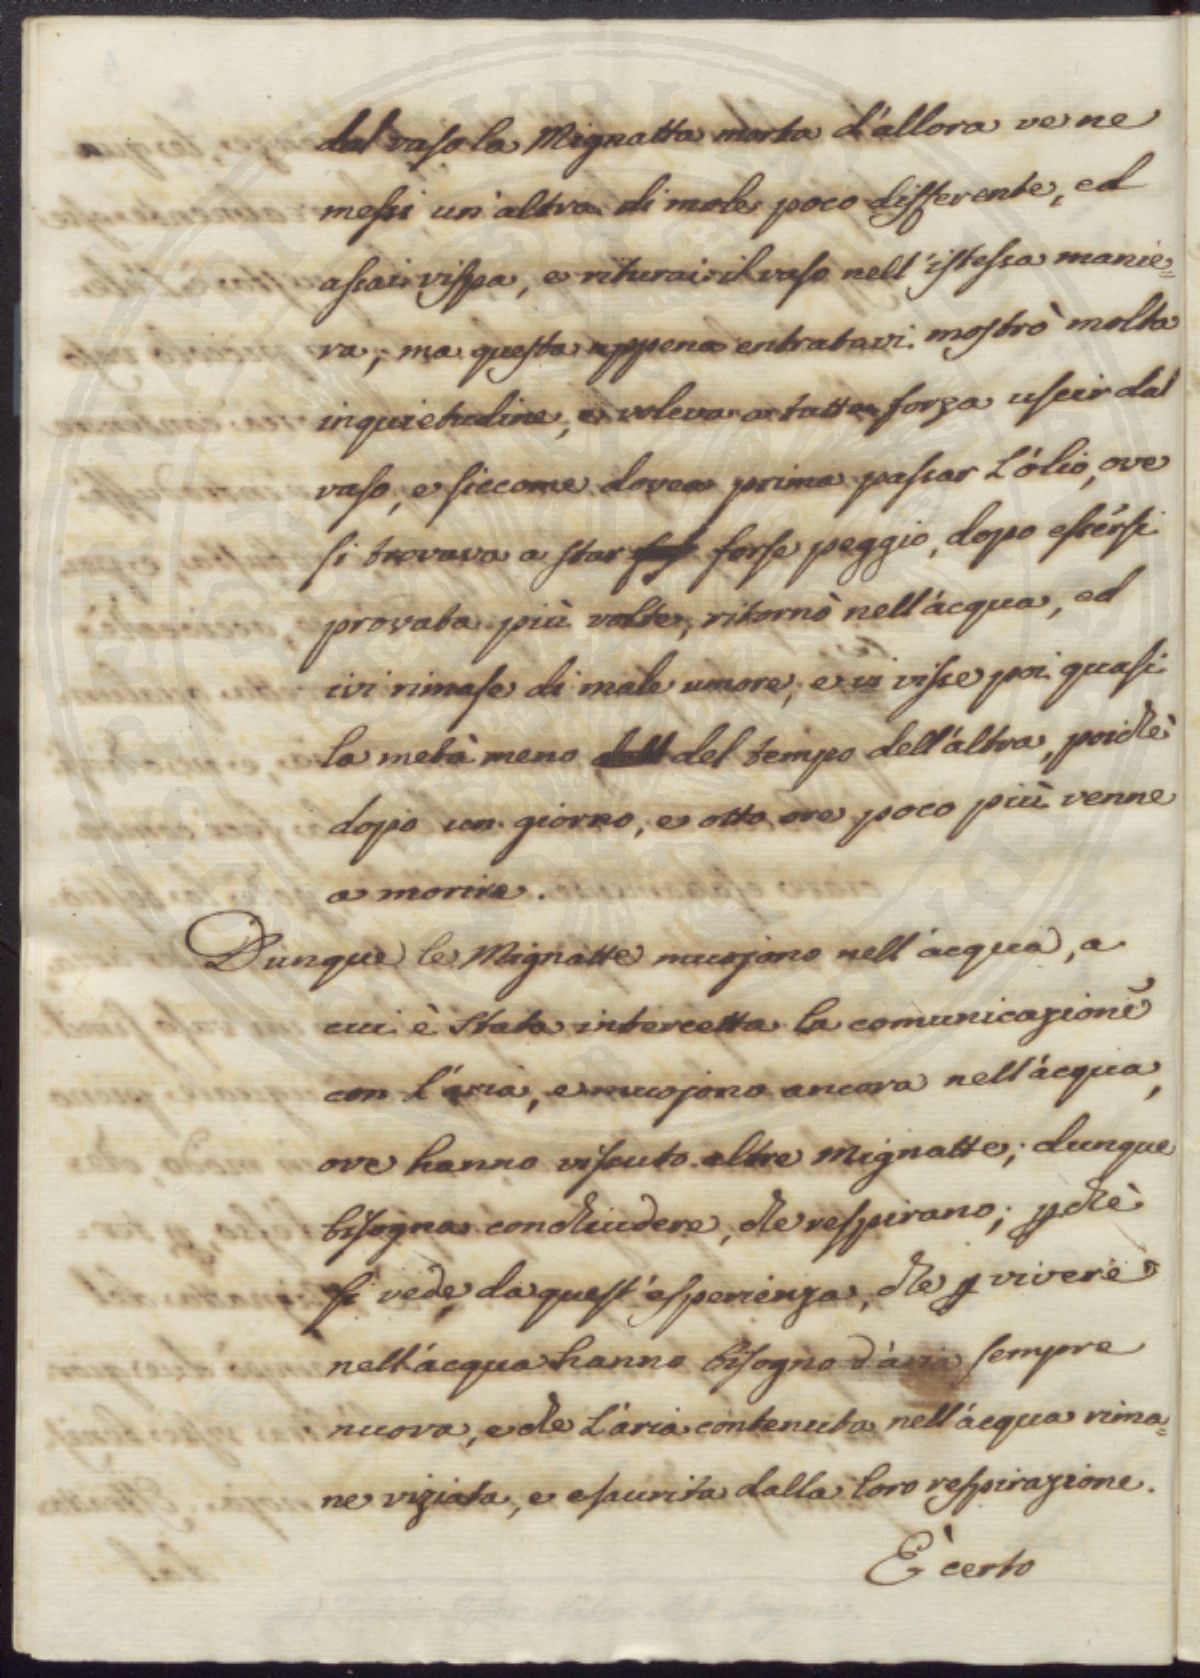 dal vaso la Mignatta morta d'allora ve ne
messi un'altra di mole poco differente, ed
assai vispa, e riturai il vaso nell'istessa manie=
ra, ma questa appena entratavi mostrò molta
inquietudine, e voleva a tutta forza uscir dal
vaso, e siccome dovea prima passar l'ólio, ove
si trovava a star forse peggio, dopo essérsi
provata più volte, ritornò nell'ácqua, ed
ivi rimase di male umore, e vi visse poi quasi
la metà meno del tempo dell'altra, poichè
dopo un giorno, e otto ore poco più venne
a morire.
Dunque le Mignatte muojono nell'acqua, a
cui è stata intercetta la comunicazione
con l'aria, e muojono ancora nell'ácqua,
ove hanno vissuto altre Mignatte; dunque
bisogna conchiudere, che respirano; pchè
si vede da quest'esperienza, che p vivere
nell'ácqua hanno bisogno d'aria sempre
nuova, e che l'aria contenuta nell'ácqua rima=
ne viziata, e esaurita dalla loro respirazione.
È certo